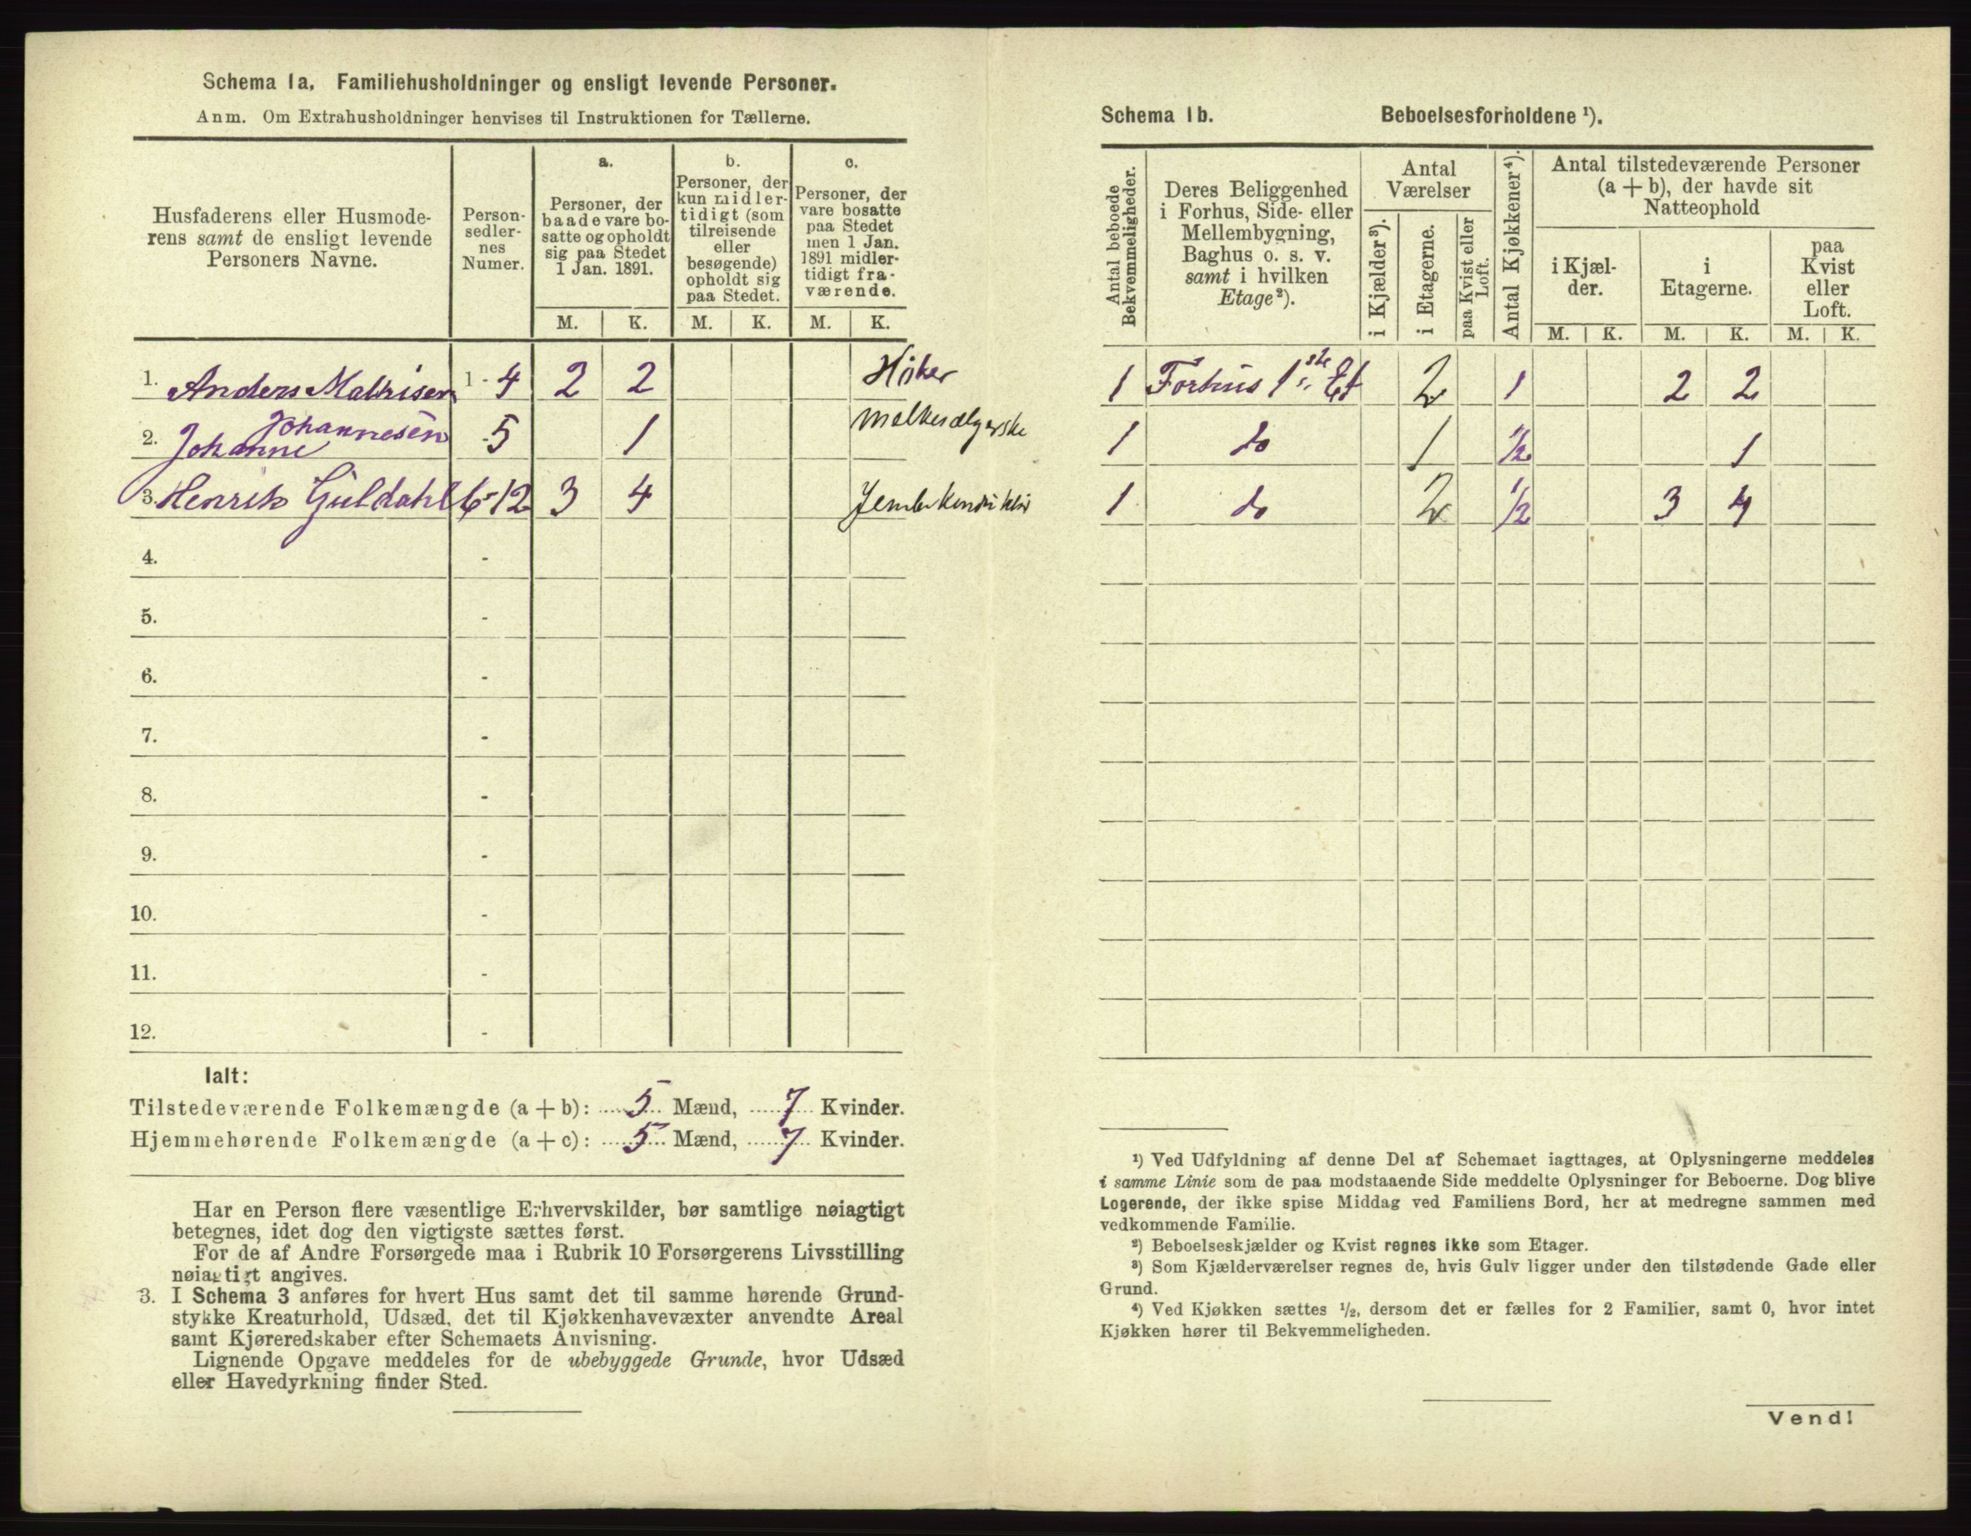 Schema 1a. Familiehusholdninger og ensligt levende Personer.
Anm. Om Extrahusholdninger henvises til Instruktionen for Tællerne.
Husfaderens eller Husmode-
rens samt de ensligt levende
Personers Navne.
Person-
sedler-
nes
Numer.
a.
Personer, der
baade vare bo-
satte og opholdt
sig paa Stedet
1 Jan. 1891.
b.
Personer, der
kun midler-
tidigt (som
tilreisende
eller
besøgende)
opholdt sig
paa Stedet.
c.
Personer, der
vare bosatte
paa Stedet
men 1 Jan.
1891 midler-
tidigt fra-
værende.
M. K. M. K. M. K.
1. Anders Mathisen 1 - 4 2 2 Höker
2. Johanne Johannesen - 5 1 Melkesælgerske
3. Henrik Guldahl 6-12 3 4
4. -
5. -
6. -
7. -
8. -
9. -
10. -
11. -
12. -
Ialt:
Tilstedeværende Folkemængde (a + b): 5 Mænd, 7 Kvinder.
Hjemmehørende Folkemængde (a + c): 5 Mænd, 7 Kvinder.
Har en Person flere væsentlige Erhvervskilder, bør samtlige nøiagtigt
betegnes, idet dog den vigtigste sættes først.
For de af Andre Forsørgede maa i Rubrik 10 Forsørgerens Livsstilling
nøiagtigt angives.
3. I Schema 3 anføres for hvert Hus samt det til samme hørende Grund-
stykke Kreaturhold, Udsæd, det til Kjøkkenhavevæxter anvendte Areal
samt Kjøreredskaber efter Schemaets Anvisning.
Lignende Opgave meddeles for de ubebyggede Grunde, hvor Udsæd
eller Havedyrkning finder Sted.
Schema 1b. Beboelsesforholdene ¹).
Antal beboede
Bekvemmeligheder.
Deres Beliggenhed
i Forhus, Side- eller
Mellembygning,
Baghus o. s. v.
samt i hvilken
Etage ²).
Antal
Værelser
i Kjælder ³).
i Etagerne.
paa Kvist eller
Loft.
Antal Kjøkkener ⁴).
Antal tilstedeværende Personer
(a + b), der havde sit
Natteophold
i Kjæl-
der.
i
Etagerne.
paa
Kvist
eller
Loft.
M. K. M. K. M. K.
1 Forhus 1ste Et 2 1 2 2
1 do 1 ½ 1
1 do 2 ½ 3 4
¹) Ved Udfyldning af denne Del af Schemaet iagttages, at Oplysningerne meddeles
i samme Linie som de paa modstaaende Side meddelte Oplysninger for Beboerne. Dog blive
Logerende, der ikke spise Middag ved Familiens Bord, her at medregne sammen med
vedkommende Familie.
²) Beboelseskjælder og Kvist regnes ikke som Etager.
³) Som Kjælderværelser regnes de, hvis Gulv ligger under den tilstødende Gade eller
Grund.
⁴) Ved Kjøkken sættes ½, dersom det er fælles for 2 Familier, samt 0, hvor intet
Kjøkken hører til Bekvemmeligheden.
Vend!